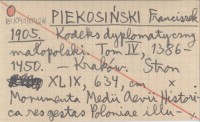 PIEKOSIŃSKI Franciszek
1905. Kodeks dyplomatyczny
małopolski. Tom IV, 1386-
1450. — Kraków. Stron
XLIX, 634, cm x
Monumenta Medii Aevi Histori-
ca res gestas Poloniae illu-